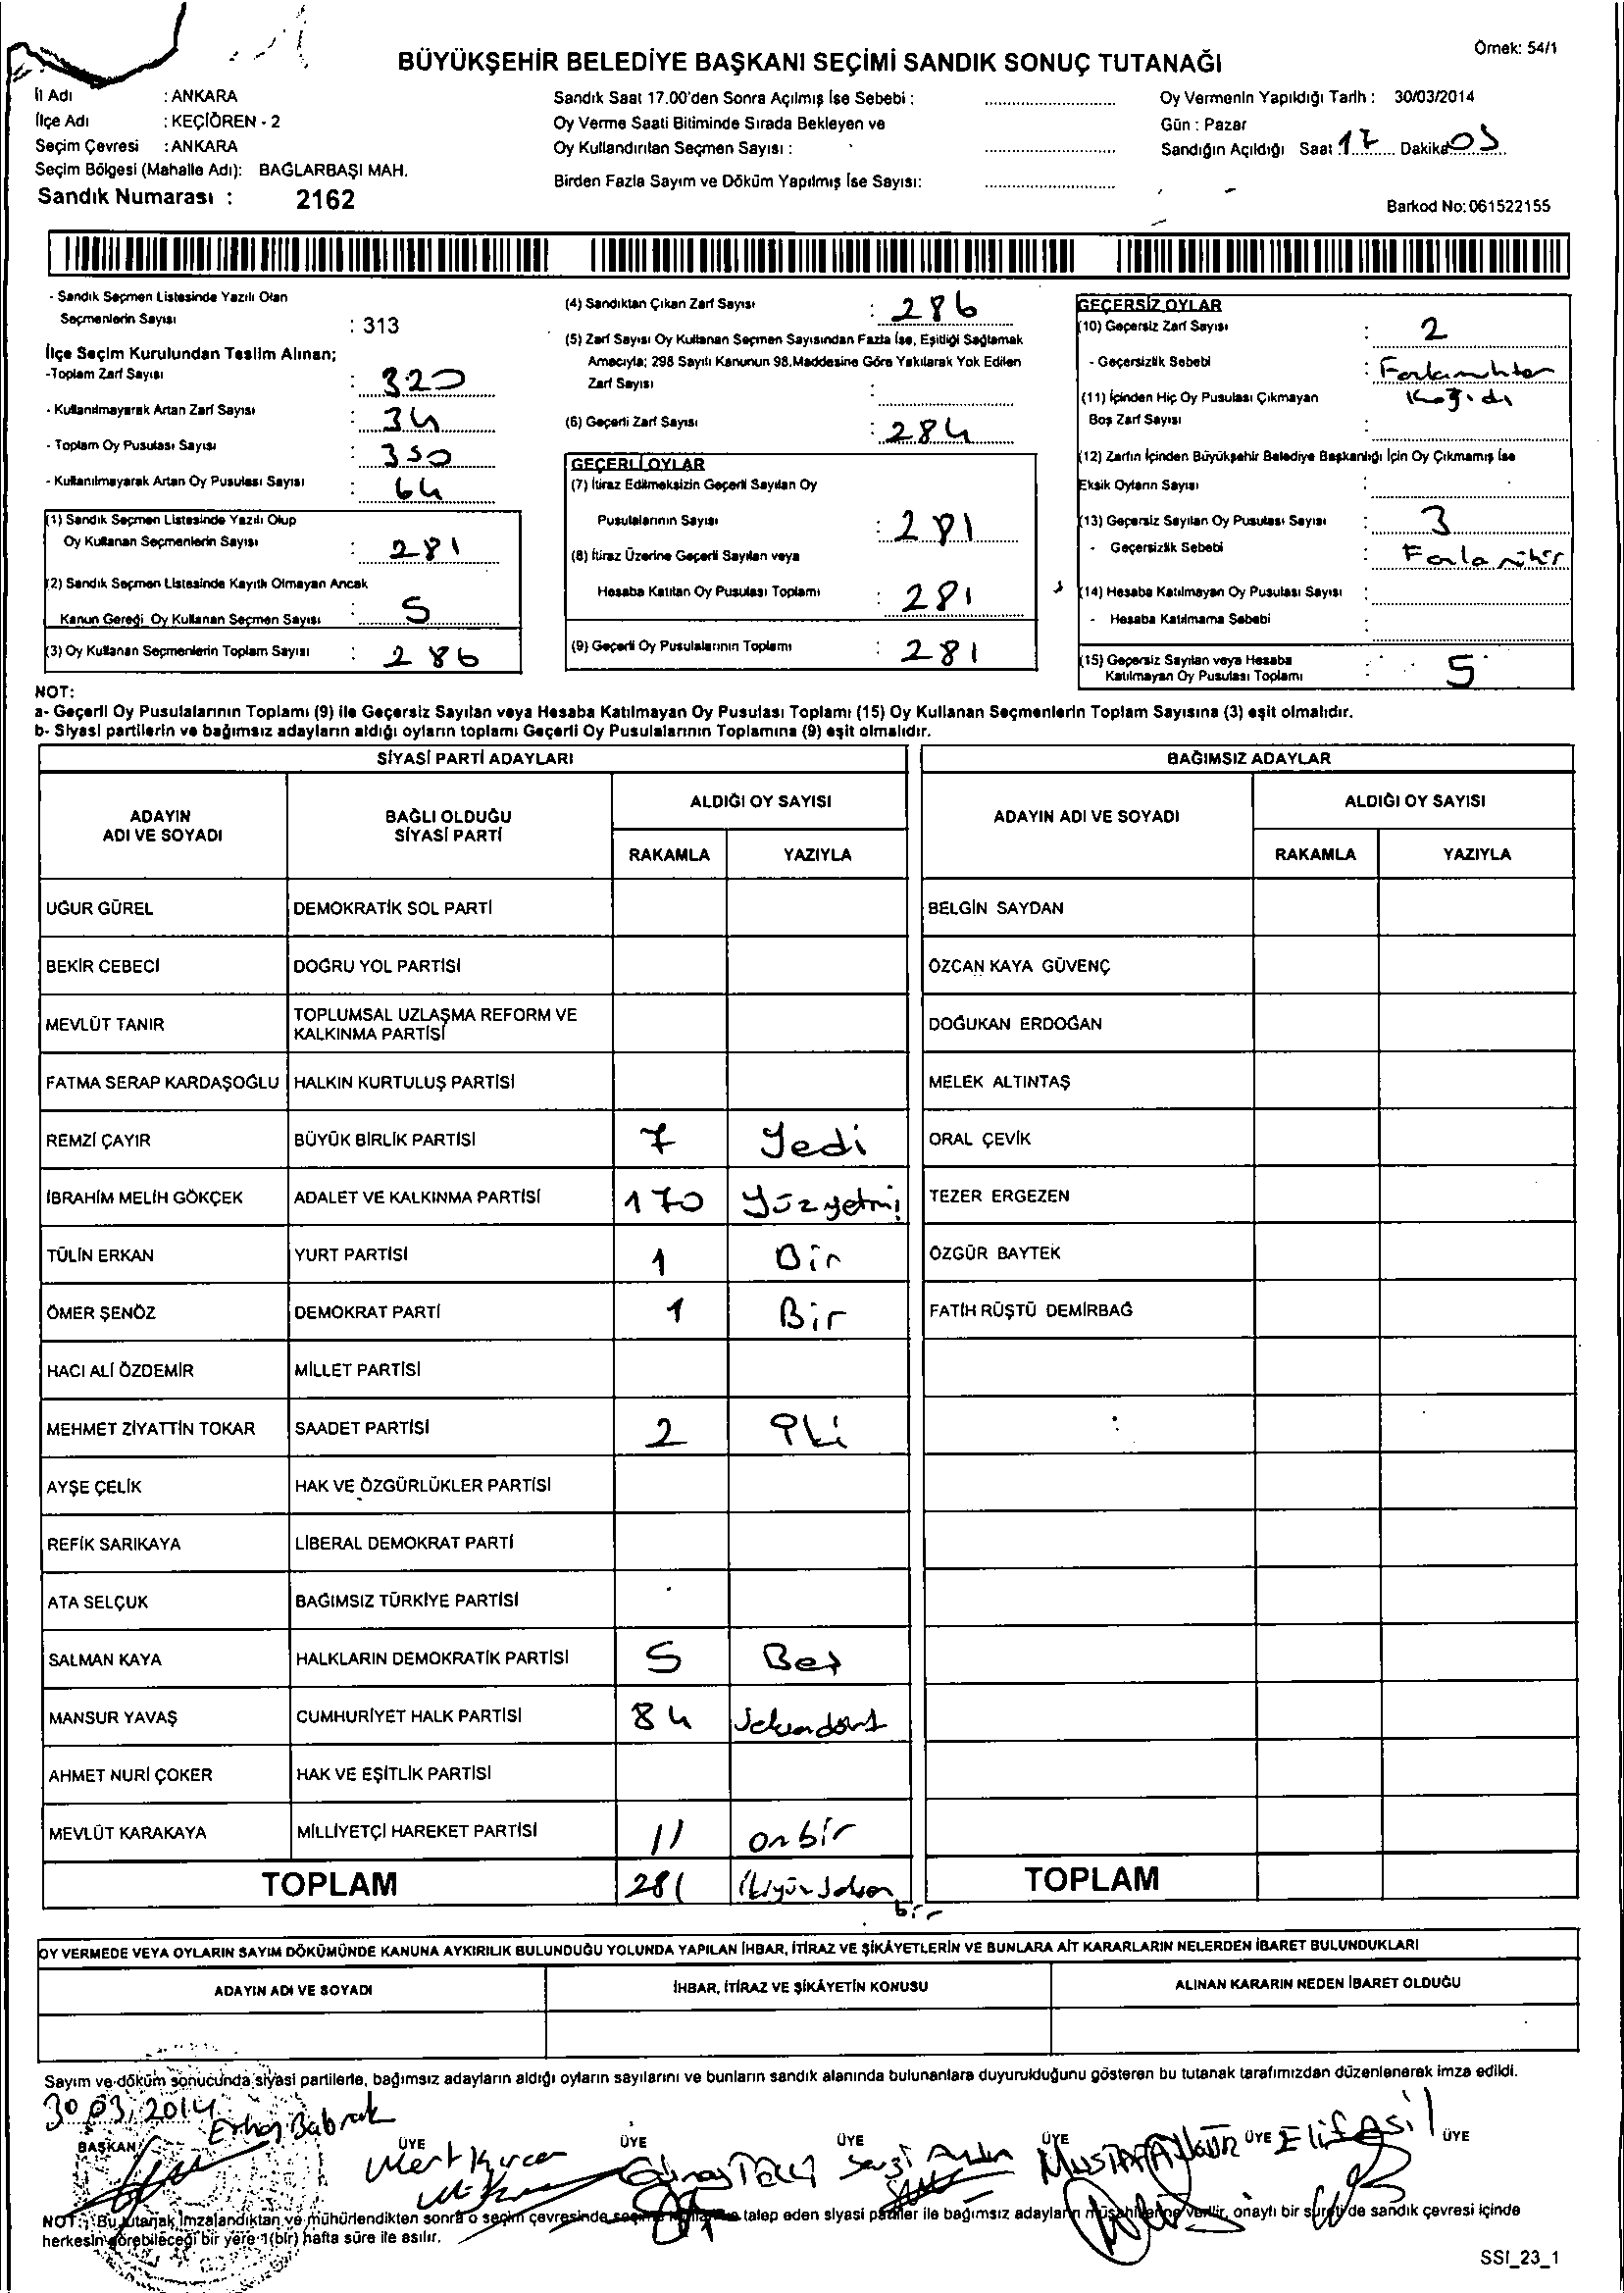 Örnek: 54/1
BÜYÜKŞEHİR BELEDİYE BAŞKANI SEÇİMİ SANDIK SONUÇ TUTANAĞI
İl Adı : ANKARA
İlçe Adı : KEÇİÖREN - 2
Seçim Çevresi : ANKARA
Seçim Bölgesi (Mahalle Adı): BAĞLARBAŞI MAH.
Sandık Numarası : 2162
Sandık Saat 17.00'den Sonra Açılmış İse Sebebi :
Oy Verme Saati Bitiminde Sırada Bekleyen ve
Oy Kullandırılan Seçmen Sayısı :
Birden Fazla Sayım ve Döküm Yapılmış İse Sayısı:
Oy Vermenin Yapıldığı Tarih : 30/03/2014
Gün : Pazar
Sandığın Açıldığı Saat 17 Dakika 05
Barkod No: 061522155
- Sandık Seçmen Listesinde Yazılı Olan
Seçmenlerin Sayısı : 313
İlçe Seçim Kurulundan Teslim Alınan;
-Toplam Zarf Sayısı : 320
- Kullanılmayarak Artan Zarf Sayısı : 34
- Toplam Oy Pusulası Sayısı : 350
- Kullanılmayarak Artan Oy Pusulası Sayısı : 64
(1) Sandık Seçmen Listesinde Yazılı Olup
Oy Kullanan Seçmenlerin Sayısı : 281
(2) Sandık Seçmen Listesinde Kayıtlı Olmayan Ancak
Kanun Gereği Oy Kullanan Seçmen Sayısı : 5
(3) Oy Kullanan Seçmenlerin Toplam Sayısı : 286
(4) Sandıktan Çıkan Zarf Sayısı : 286
(5) Zarf Sayısı Oy Kullanan Seçmen Sayısından Fazla İse, Eşitliği Sağlamak
Amacıyla; 298 Sayılı Kanunun 98.Maddesine Göre Yakılarak Yok Edilen
Zarf Sayısı :
(6) Geçerli Zarf Sayısı : 284
GEÇERLİ OYLAR
(7) İtiraz Edilmeksizin Geçerli Sayılan Oy
Pusulalarının Sayısı : 281
(8) İtiraz Üzerine Geçerli Sayılan veya
Hesaba Katılan Oy Pusulası Toplamı : 281
(9) Geçerli Oy Pusulalarının Toplamı : 281
GEÇERSİZ OYLAR
(10) Geçersiz Zarf Sayısı : 2
- Geçersizlik Sebebi :
(11) İçinden Hiç Oy Pusulası Çıkmayan
Boş Zarf Sayısı :
(12) Zarfın İçinden Büyükşehir Belediye Başkanlığı İçin Oy Çıkmamış İse
Eksik Oyların Sayısı :
(13) Geçersiz Sayılan Oy Pusulası Sayısı : 3
- Geçersizlik Sebebi :
(14) Hesaba Katılmayan Oy Pusulası Sayısı :
- Hesaba Katılmama Sebebi :
(15) Geçersiz Sayılan veya Hesaba
Katılmayan Oy Pusulası Toplamı : 5
NOT:
a- Geçerli Oy Pusulalarının Toplamı (9) ile Geçersiz Sayılan veya Hesaba Katılmayan Oy Pusulası Toplamı (15) Oy Kullanan Seçmenlerin Toplam Sayısına (3) eşit olmalıdır.
b- Siyasi partilerin ve bağımsız adayların aldığı oyların toplamı Geçerli Oy Pusulalarının Toplamına (9) eşit olmalıdır.
SİYASİ PARTİ ADAYLARI
ADAYIN ADI VE SOYADI BAĞLI OLDUĞU SİYASİ PARTİ ALDIĞI OY SAYISI
RAKAMLA YAZIYLA
UĞUR GÜREL DEMOKRATİK SOL PARTİ
BEKİR CEBECİ DOĞRU YOL PARTİSİ
MEVLÜT TANIR TOPLUMSAL UZLAŞMA REFORM VE KALKINMA PARTİSİ
FATMA SERAP KARDAŞOĞLU HALKIN KURTULUŞ PARTİSİ
REMZİ ÇAYIR BÜYÜK BİRLİK PARTİSİ 7 Yedi
İBRAHİM MELİH GÖKÇEK ADALET VE KALKINMA PARTİSİ 170 Yüzyetmiş
TÜLİN ERKAN YURT PARTİSİ 1 Bir
ÖMER ŞENÖZ DEMOKRAT PARTİ 1 Bir
HACI ALİ ÖZDEMİR MİLLET PARTİSİ
MEHMET ZİYATTİN TOKAR SAADET PARTİSİ 2 İki
AYŞE ÇELİK HAK VE ÖZGÜRLÜKLER PARTİSİ
REFİK SARIKAYA LİBERAL DEMOKRAT PARTİ
ATA SELÇUK BAĞIMSIZ TÜRKİYE PARTİSİ
SALMAN KAYA HALKLARIN DEMOKRATİK PARTİSİ 5 Beş
MANSUR YAVAŞ CUMHURİYET HALK PARTİSİ 84 Seksendört
AHMET NURİ ÇOKER HAK VE EŞİTLİK PARTİSİ
MEVLÜT KARAKAYA MİLLİYETÇİ HAREKET PARTİSİ 11 onbir
TOPLAM 281 İkiyüzseksen bir
BAĞIMSIZ ADAYLAR
ADAYIN ADI VE SOYADI ALDIĞI OY SAYISI
RAKAMLA YAZIYLA
BELGİN SAYDAN
ÖZCAN KAYA GÜVENÇ
DOĞUKAN ERDOĞAN
MELEK ALTINTAŞ
ORAL ÇEVİK
TEZER ERGEZEN
ÖZGÜR BAYTEK
FATİH RÜŞTÜ DEMİRBAĞ
TOPLAM
OY VERMEDE VEYA OYLARIN SAYIM DÖKÜMÜNDE KANUNA AYKIRILIK BULUNDUĞU YOLUNDA YAPILAN İHBAR, İTİRAZ VE ŞİKÂYETLERİN VE BUNLARA AİT KARARLARIN NELERDEN İBARET BULUNDUKLARI
ADAYIN ADI VE SOYADI İHBAR, İTİRAZ VE ŞİKÂYETİN KONUSU ALINAN KARARIN NEDEN İBARET OLDUĞU
Sayım ve döküm sonucunda siyasi partilerle, bağımsız adayların aldığı oyların sayılarını ve bunların sandık alanında bulunanlara duyurulduğunu gösteren bu tutanak tarafımızdan düzenlenerek imza edildi.
30.03.2014
BAŞKAN ÜYE ÜYE ÜYE ÜYE ÜYE ÜYE
NOT: Bu tutanak imzalandıktan ve mühürlendikten sonra o seçim çevresinde talep eden siyasi partiler ile bağımsız adayların müşahitlerine verilir, onaylı bir sureti de sandık çevresi içinde
herkesin görebileceği bir yere 1(bir) hafta süre ile asılır.
SSI_23_1